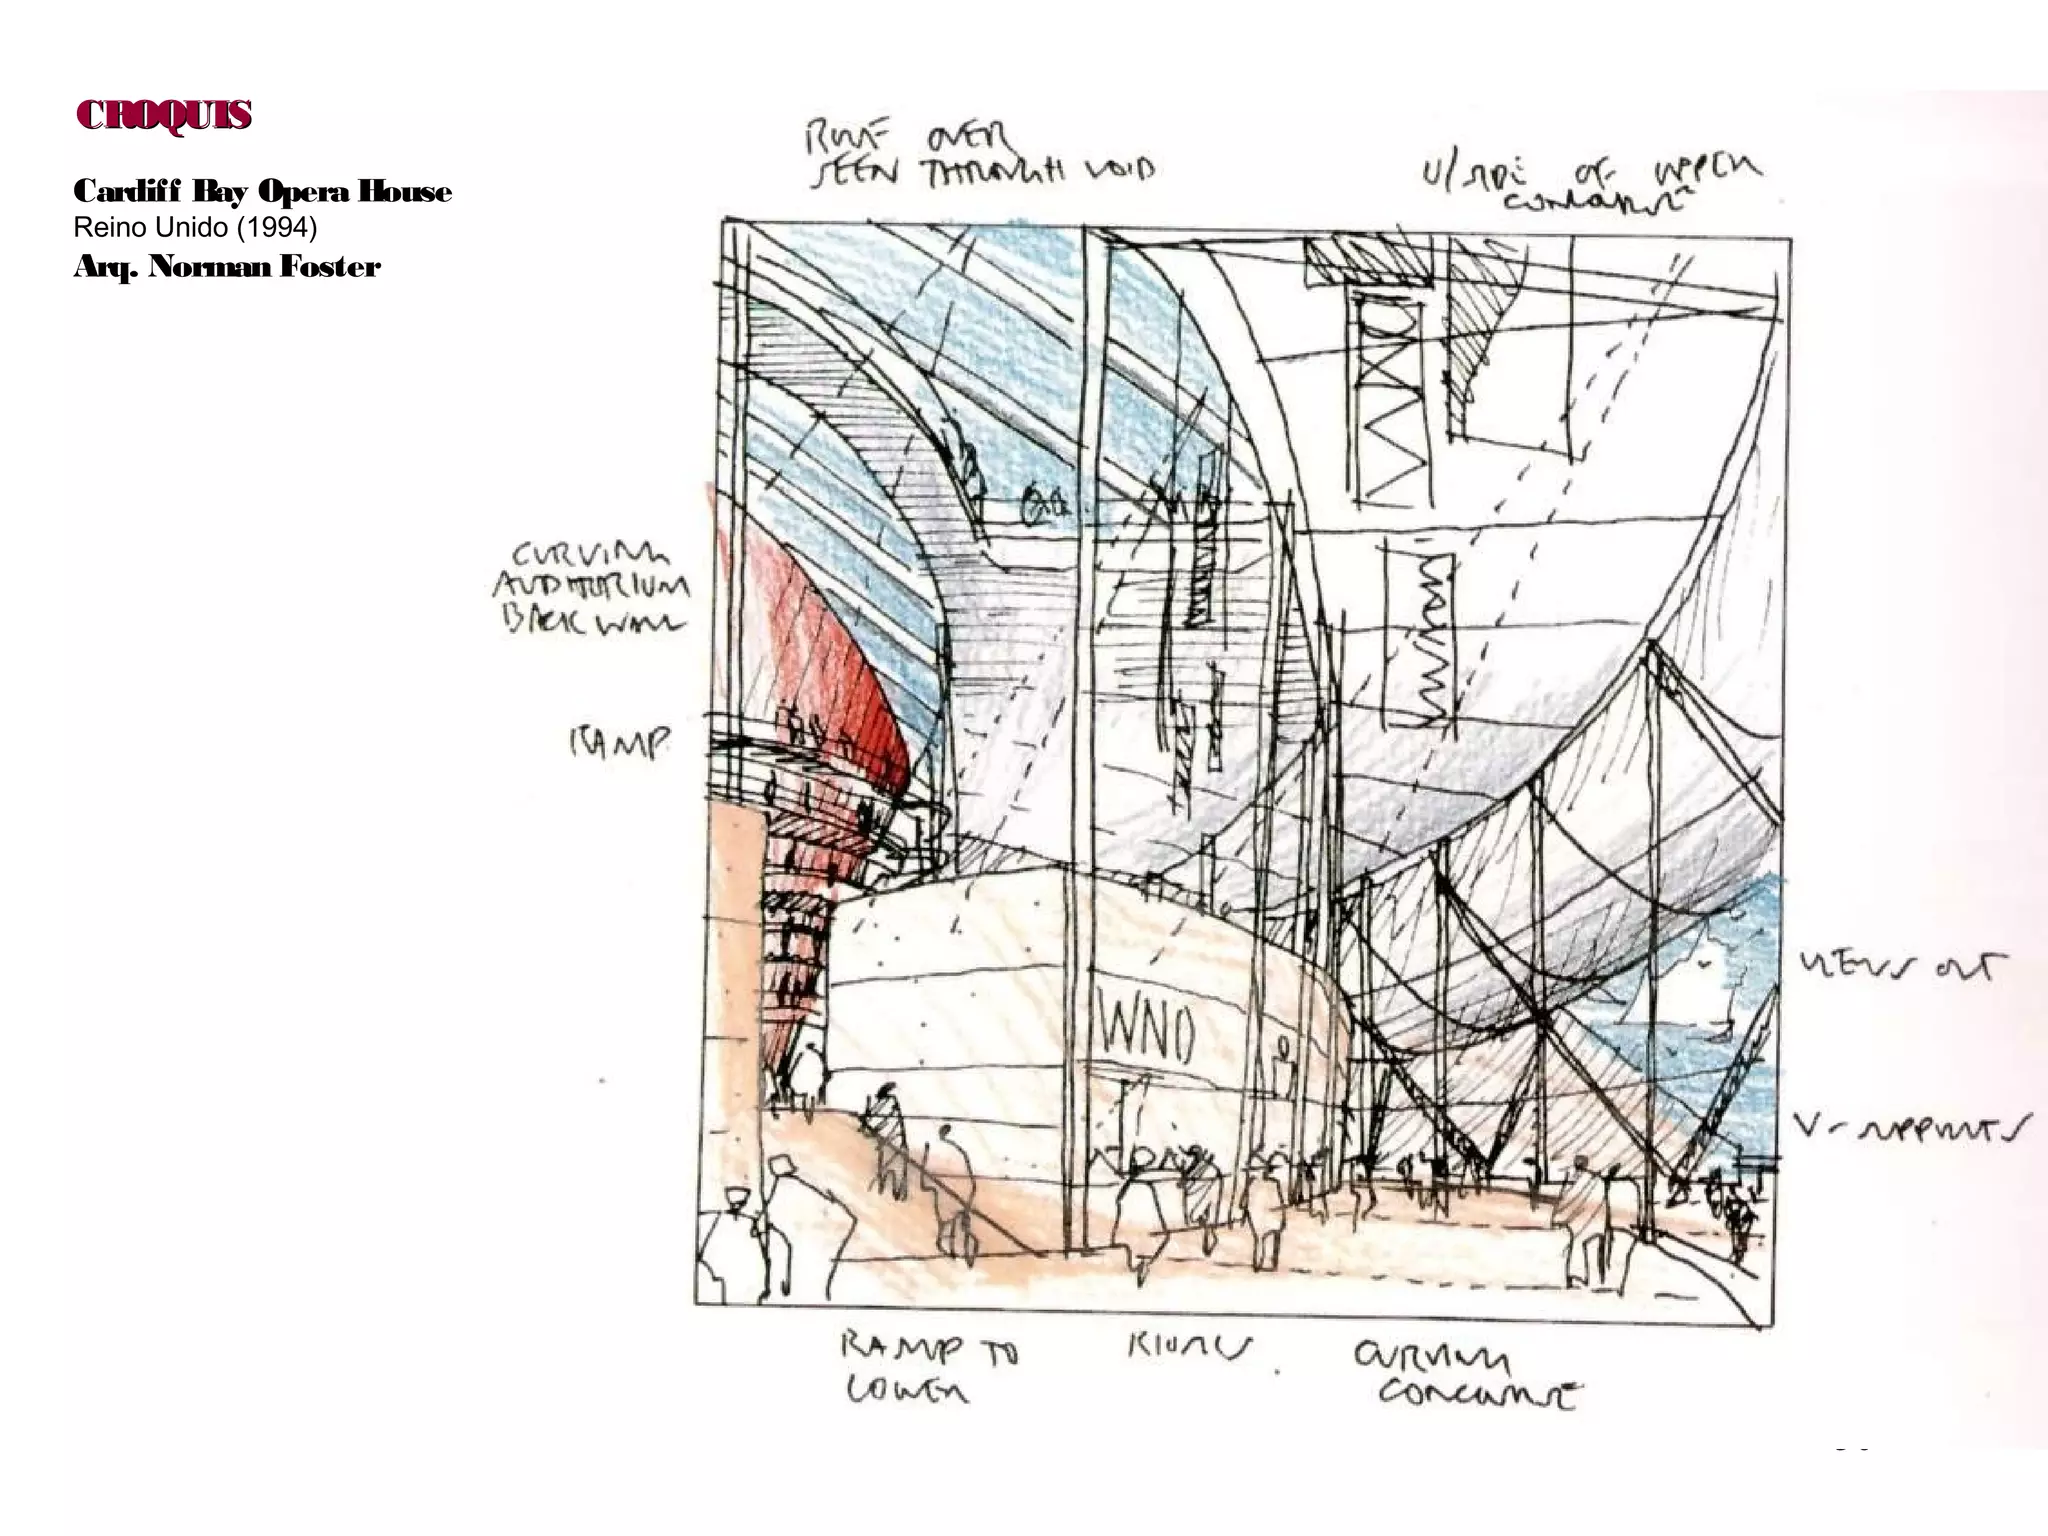 CROQUIS
Cardiff Bay Opera House
Reino Unido (1994)
Arq. Norman Foster
ROOF OVER
SEEN THROUGH VOID
U/SIDE OF UPPER
CONCOURSE
CURVING
AUDITORIUM
BACK WALL
RAMP
WNO
VIEWS OUT
V-SUPPORTS
RAMP TO
LOWER
KIOSKS
CURVING
CONCOURSE